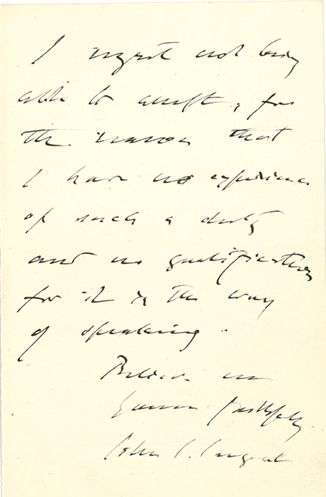 I regret not being
able to accept, for
the reason that
I have no experience
of such a duty
and no qualifications
for it in the way
of speaking.
Believe me
yours faithfully
John S. Sargent